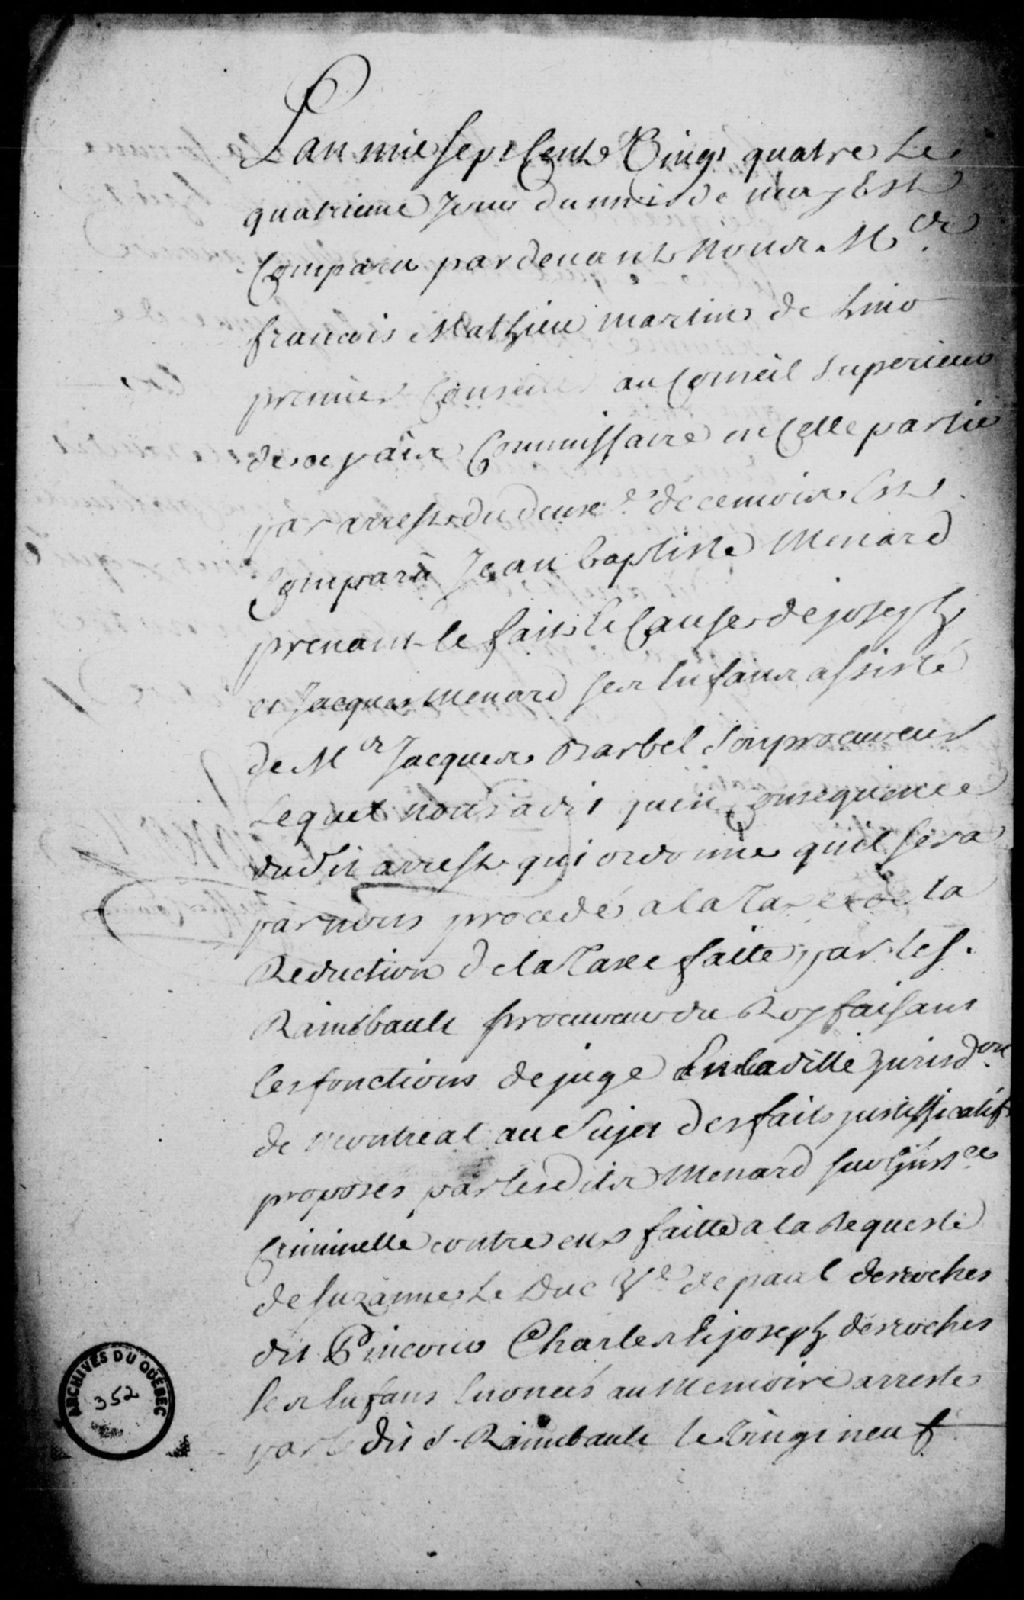 Lan mil sept Cent Vingt quatre Le
quatrieme Jour du mois de may Est
Comparu pardevant Nous Me
francois Mathieu martin de Lino
premier Conseiller au Conseil Superieur
de ce paÿs Commissaire en Celle partie
par arrest du deuxe decembre Est
Comparu Jean baptiste Menard
prenant le fait et Cause de joseph
et Jacques Menard ses Enfans assisté
de Me Jacques Barbel son procureur
Lequel nous a dit quen Consequence
dudit arrest qui ordonne quil sera
par nous procedé a la Taxe et a la
Reduction de la Taxe faitte par le s.
Raimbault procureur du Roy faisant
les fonctions de juge En la ditte jurisdon
de Montreal au Sujet des faits justifficatifs
proposés par lesdits Menard sur Linstce
Criminelle contre eux faitte a la Requeste
de suzanne Le Duc Ve de paul desroches
dit Pincour Charles et joseph desroches
ses Enfans Enoncés au Memoire arresté
par le dit s. Raimbault le Vingt neuf
ARCHIVES DU QUÉBEC
352